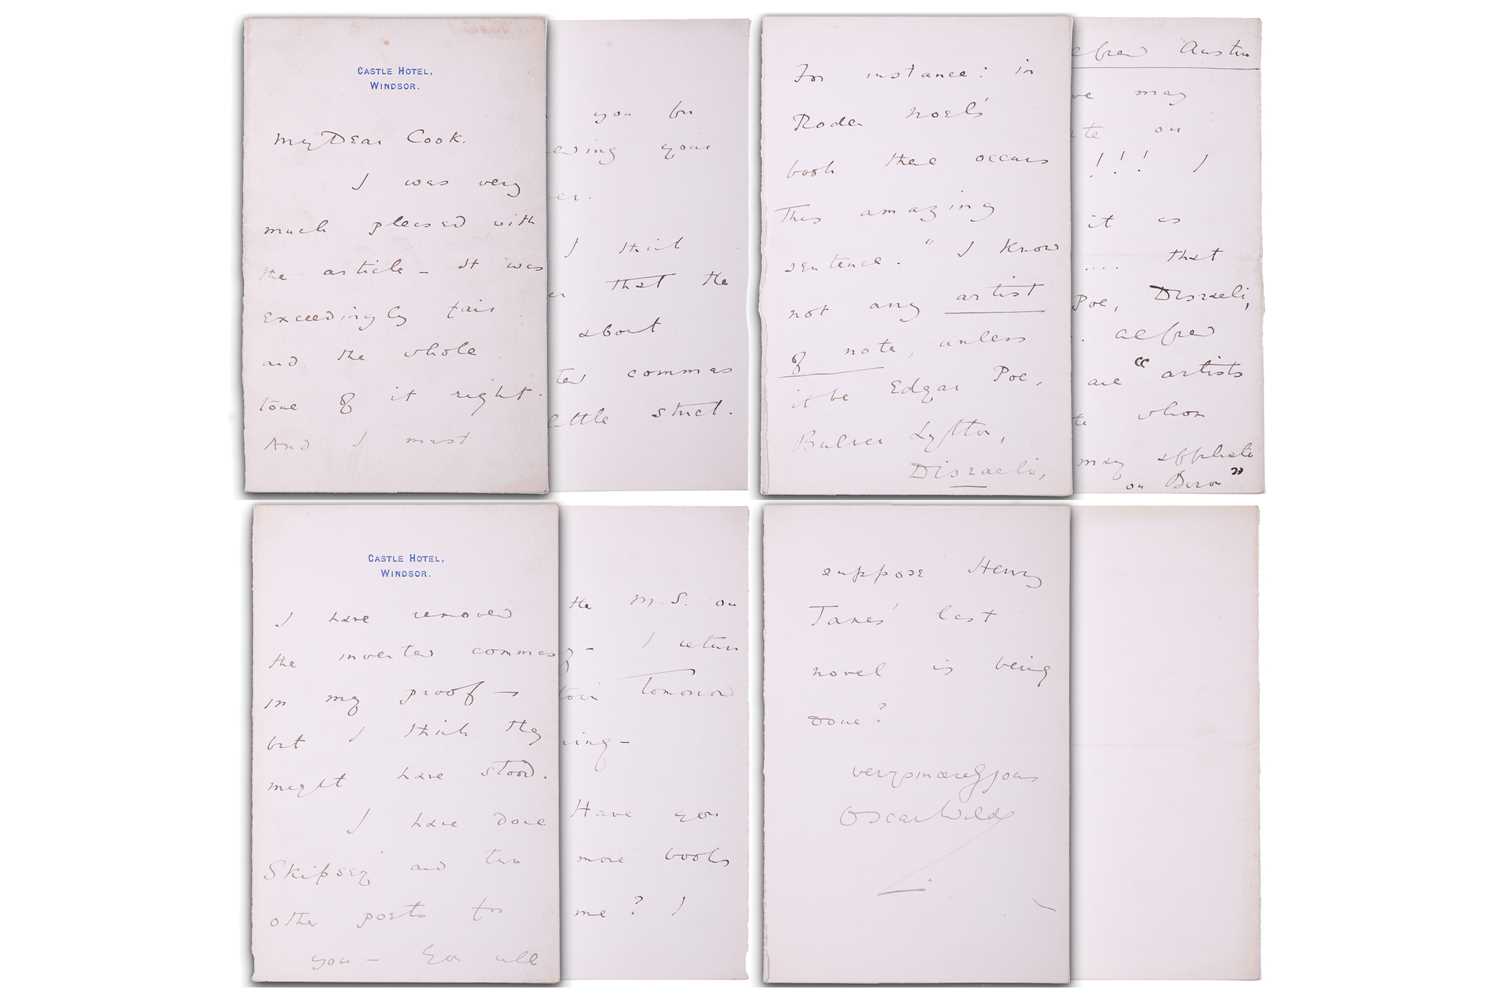 CASTLE HOTEL,
WINDSOR.
My Dear Cook.
I was very
much pleased with
the article - it was
exceedingly fair
and the whole
tone of it right.
And I must
you for
ewing your
er.
I think
that the
about
ted commas
little strict.
For instance: in
Roden Noel's
book there occurs
This amazing
sentence. "I know
not any artist
of note, unless
it be Edgar Poe,
Bulwer Lytton,
Disraeli,
Alfred Austin
may
on
!!! I
it as
.... that
Poe, Disraeli,
. Alfred
are "artists
whom
may
on Byron"
CASTLE HOTEL,
WINDSOR.
I have removed
the inverted commas
in my proof -
but I think they
might have stood.
I have done
Skipsey and two
other poets for
you - You will
the M.S. on
- I return
Tomorrow
ning -
Have you
more books
me? I
suppose Henry
James' last
novel is being
done?
very sincerely yours
Oscar Wilde